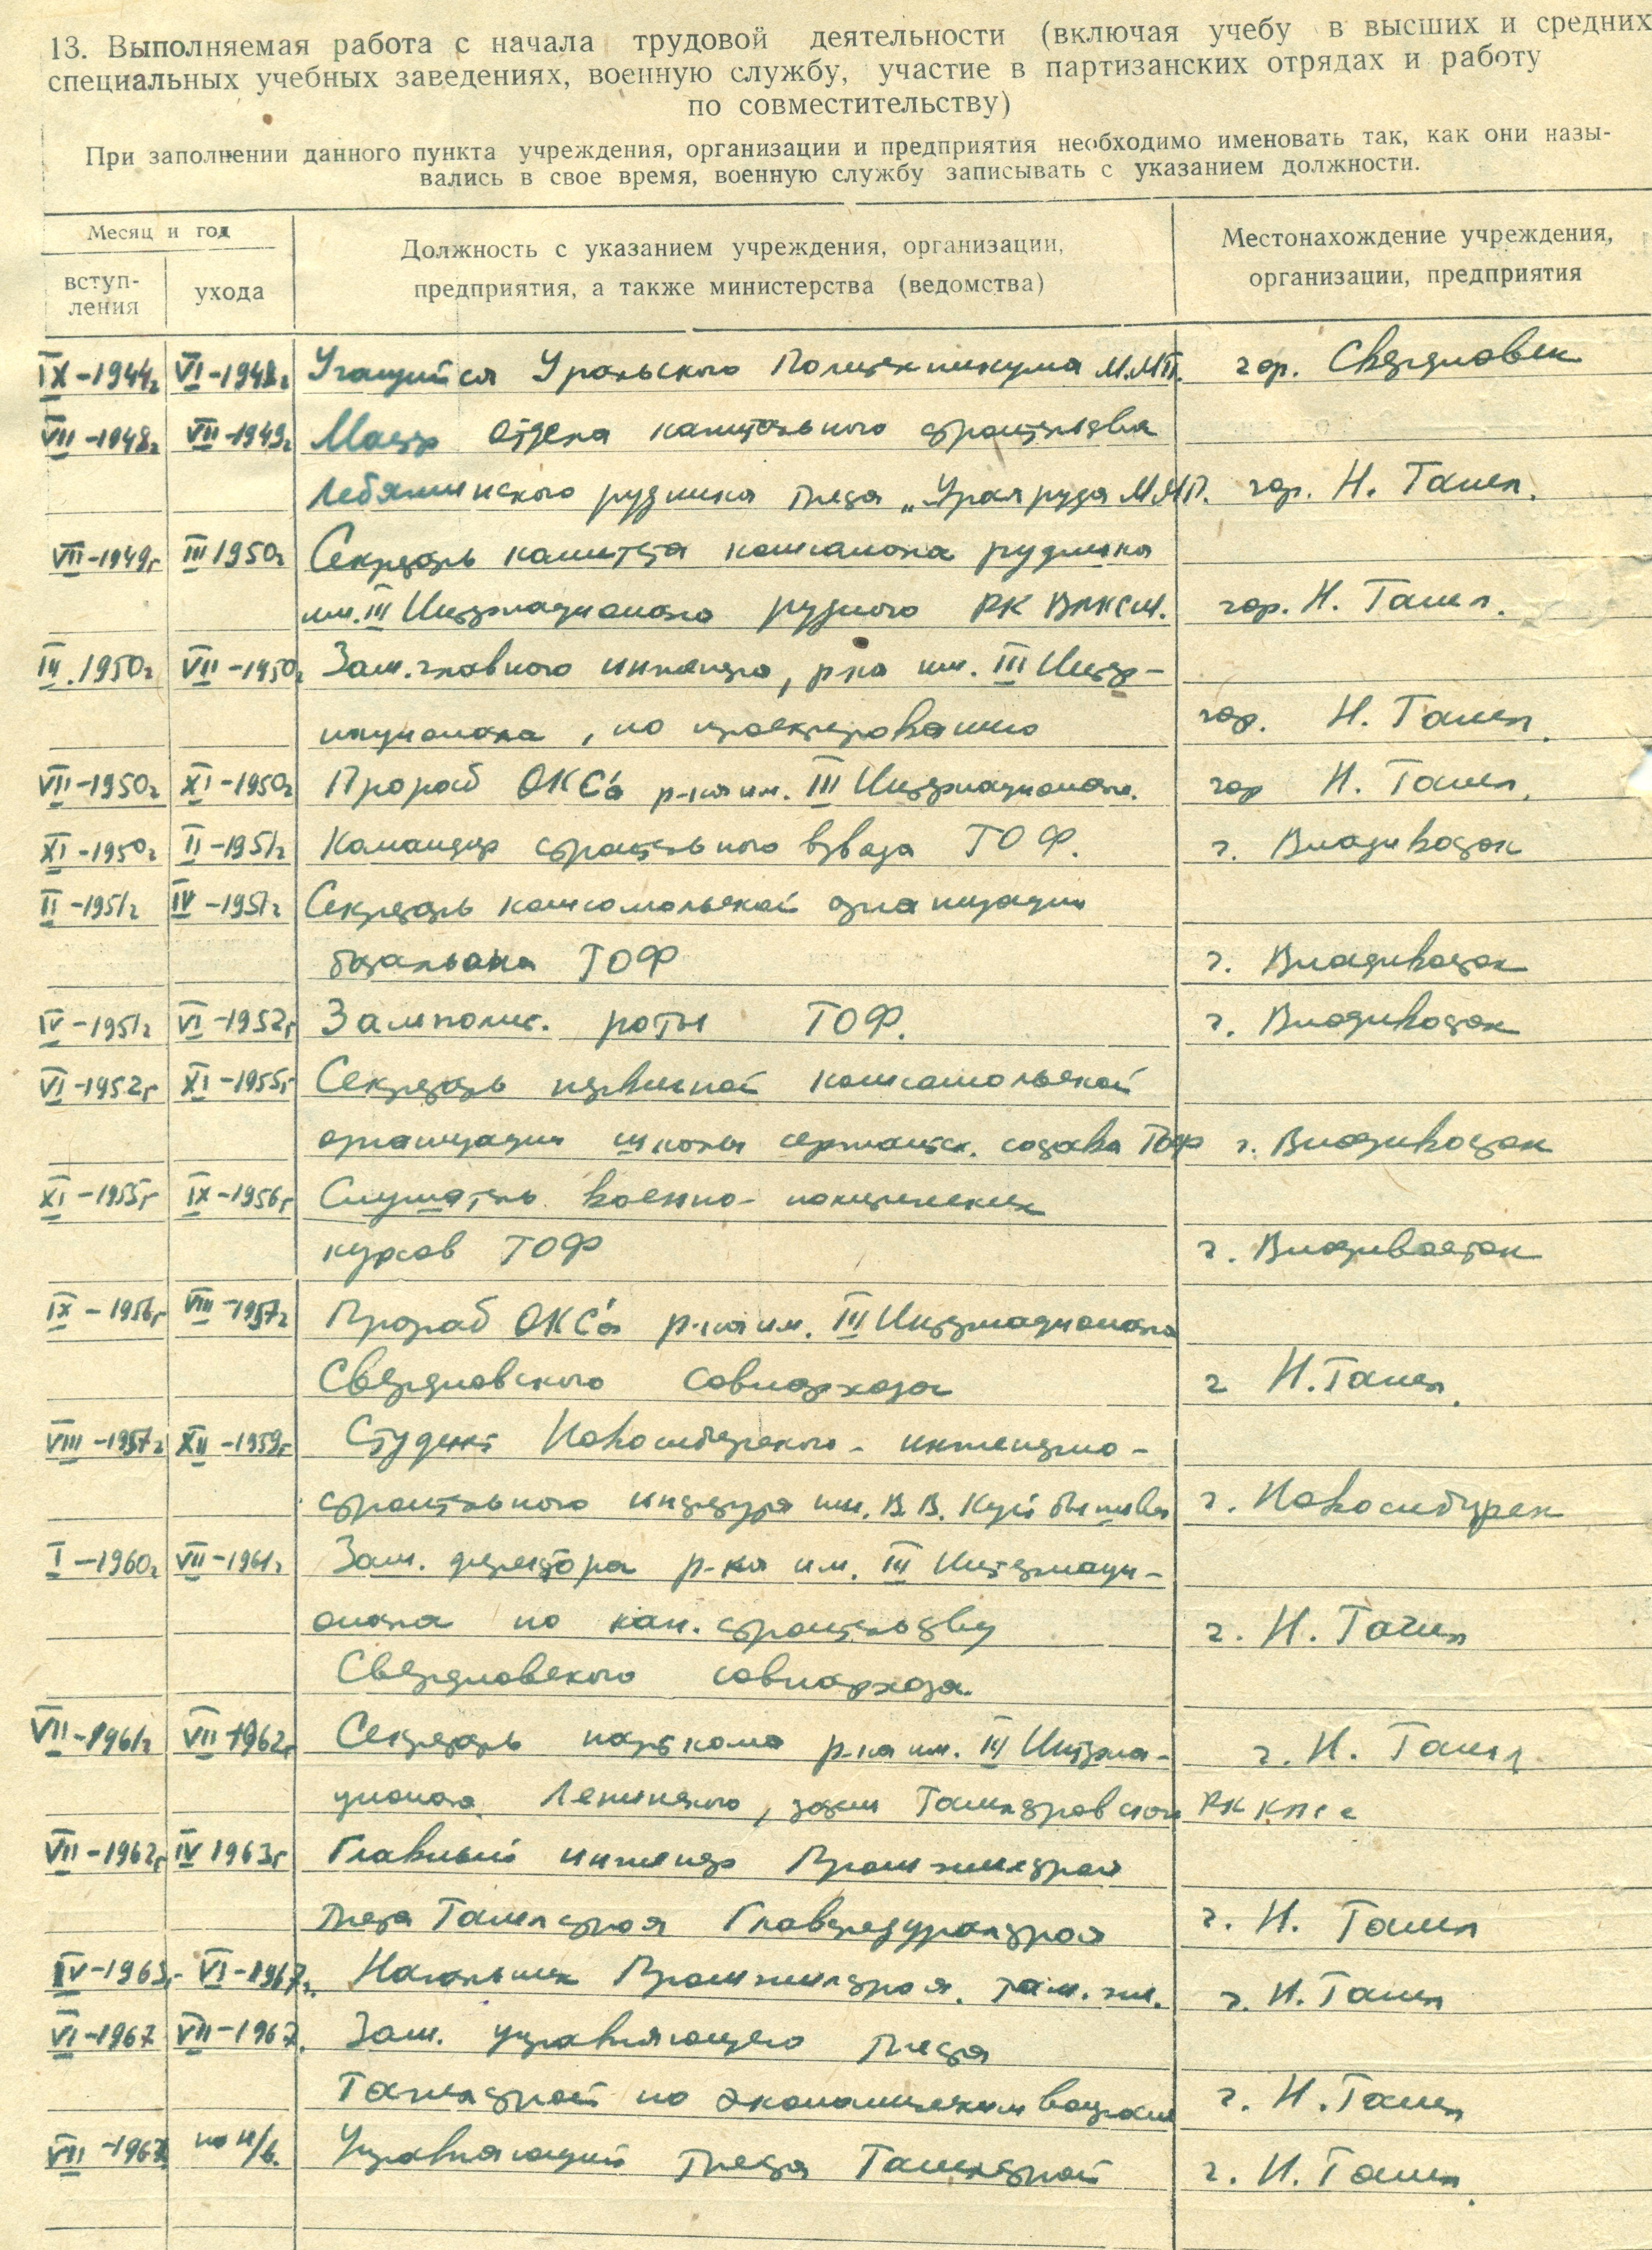 13. Выполняемая работа с начала трудовой деятельности (включая учебу в высших и средних
специальных учебных заведениях, военную службу, участие в партизанских отрядах и работу
по совместительству)
При заполнении данного пункта учреждения, организации и предприятия необходимо именовать так, как они назы-
вались в свое время, военную службу записывать с указанием должности.
Месяц и год
вступ-
ления
ухода
Должность с указанием учреждения, организации,
предприятия, а также министерства (ведомства)
Местонахождение учреждения,
организации, предприятия
IX-1944г VI-1948г Учащийся Уральского Политехникума М.М.П. гор. Свердловск
VII-1948г VII-1949г Мастер отдела капитального строительства
Лебяжинского рудника треста „Уралруда ММП. гор. Н. Тагил.
VII-1949г III 1950г Секретарь комитета комсомола рудника
им. III Интернационала рудного РК ВЛКСМ. гор. Н. Тагил.
III.1950г VII-1950г Зам. главного инженера, р-ка им. III Интер-
национала, по проектированию гор. Н. Тагил.
VII-1950г XI-1950г Прораб ОКС'а р-ка им. III Интернационала. гор Н. Тагил.
XI-1950г II-1951г Командир строительного взвода ТОФ. г. Владивосток
II-1951г IV-1951г Секретарь комсомольской организации
батальона ТОФ г. Владивосток
IV-1951г VI-1952г Замполит. роты ТОФ. г. Владивосток
VI-1952г XI-1955г Секретарь первичной комсомольской
организации школы сержантск. состава ТОФ г. Владивосток
XI-1955г IX-1956г Слушатель военно-политических
курсов ТОФ г. Владивосток
IX-1956г VIII-1957г Прораб ОКС'а р-ка им. III Интернационала
Свердловского совнархоза г Н.Тагил.
VIII-1957г XII-1959г Студент Новосибирского-инженерно-
строительного института им. В.В. Куйбышева г. Новосибирск
I-1960г VII-1961г Зам. директора р-ка им. III Интернаци-
онала по кап. строительству г. Н. Тагил
Свердловского совнархоза.
VII-1961г VII-1962г Секретарь парткома р-ка им. III Интерна- г. Н. Тагил
ционала Ленинского, затем Тагилстровского РК КПСС
VII-1962г IV 1963г Главный инженер Промжилстрой
треста Тагилстроя Главсредуралстроя г. Н. Тагил
IV-1963г- VI-1967г. Начальник Промжилстроя. г. Н. Тагил
VI-1967 VII-1967. Зам. управляющего треста
Тагилстрой по экономическим вопросам г. Н. Тагил
VII-1967 по н/в. Управляющий треста Тагилстрой г. Н. Тагил.